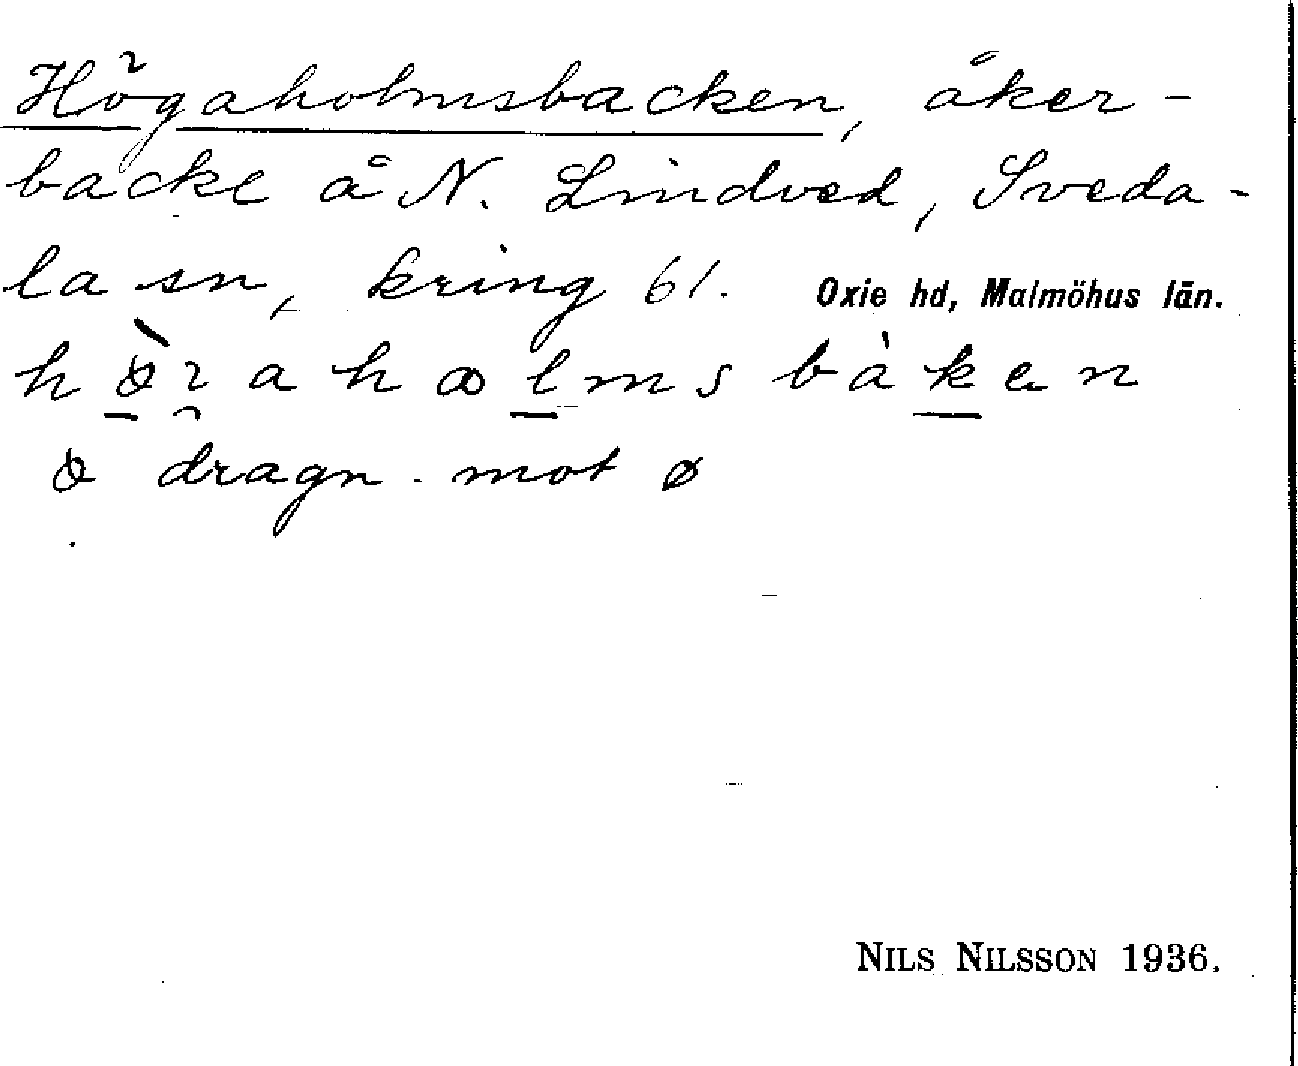 Högaholmsbacken, åker-
backe å N. Lindved, Sveda-
la sn, kring 61. Oxie hd, Malmöhus län.
dragn. mot ø
NILS NILSSON 1936.